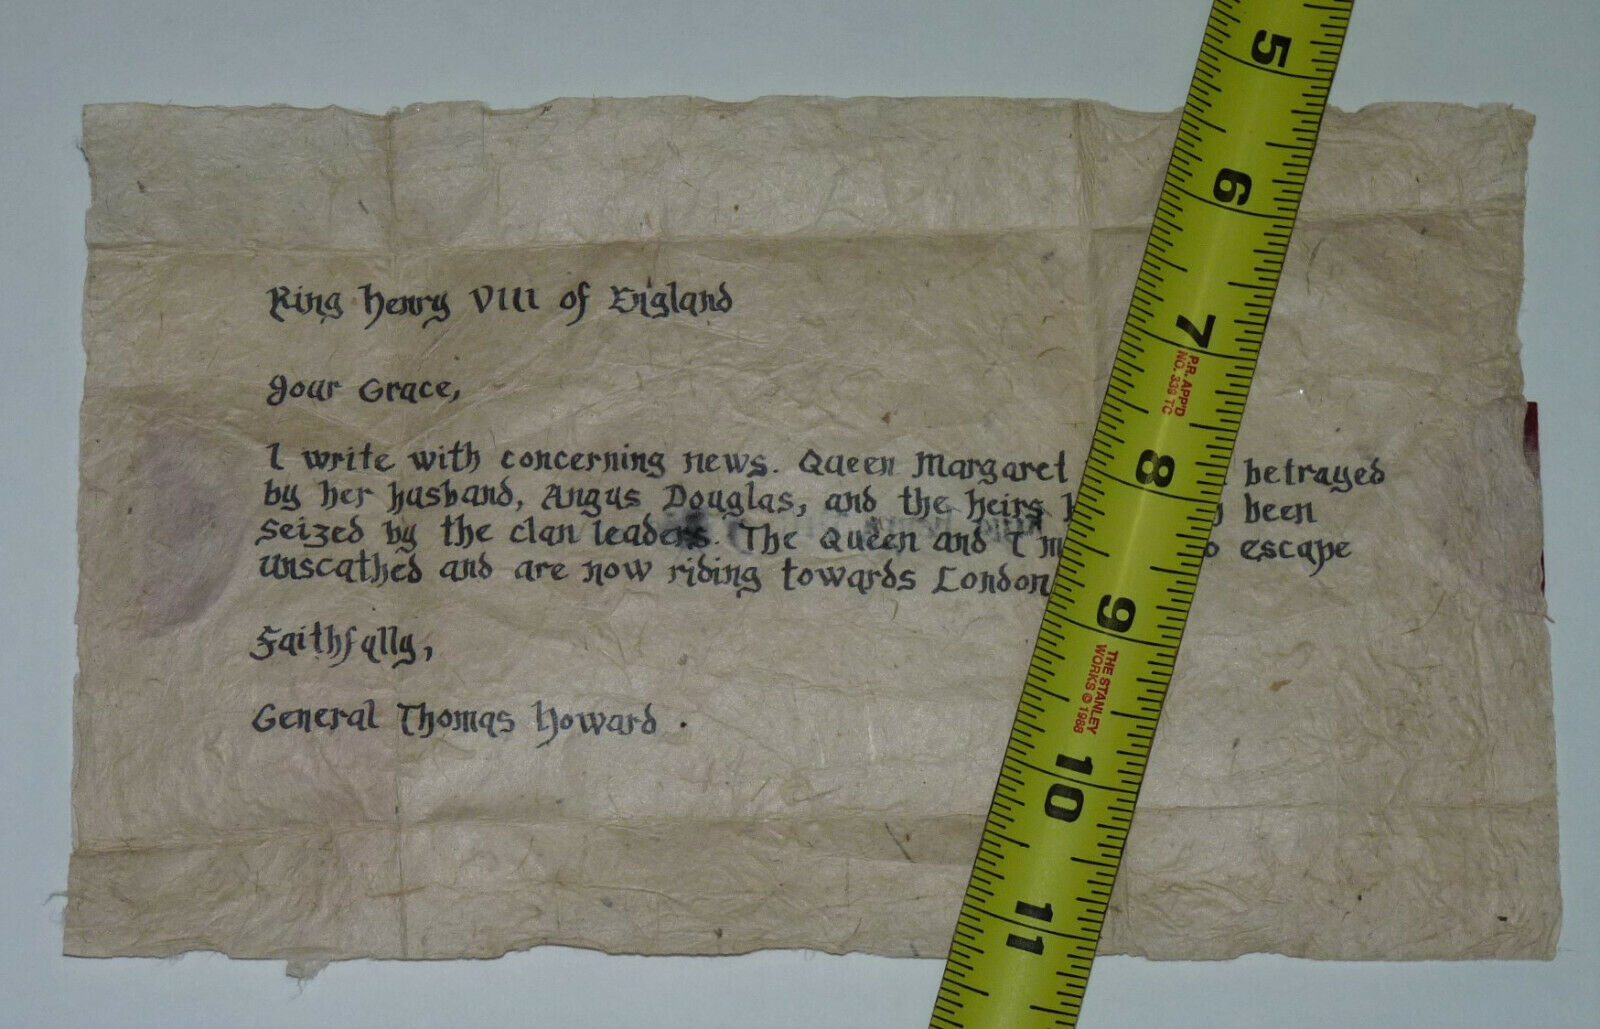 King Henry VIII of England
Your Grace,
I write with concerning news. Queen Margaret betrayed
by her husband, Angus Douglas, and the heirs been
seized by the clan leaders. The Queen and I escape
unscathed and are now riding towards London
Faithfully,
General Thomas Howard.
5
6
7
P.R. APP'D
NO. 339 TC
8
9
THE STANLEY
WORKS © 1988
10
11